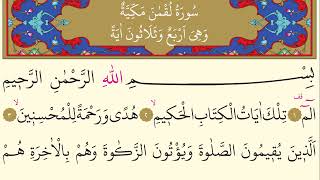 سُورَةُ لُقْمٰنَ مَكِّيَّةٌ
وَهِيَ اَرْبَعٌ وَثَلَاثُونَ اٰيَةً
بِسْمِ اللهِ الرَّحْمٰنِ الرَّحِيمِ
الٓمٓ ۚ ﴿١﴾ تِلْكَ اٰيَاتُ الْكِتَابِ الْحَكِيمِ ۙ ﴿٢﴾ هُدًى وَرَحْمَةً لِلْمُحْسِنِينَ ۙ ﴿٣﴾
اَلَّذِينَ يُقِيمُونَ الصَّلٰوةَ وَيُؤْتُونَ الزَّكٰوةَ وَهُمْ بِالْاٰخِرَةِ هُمْ